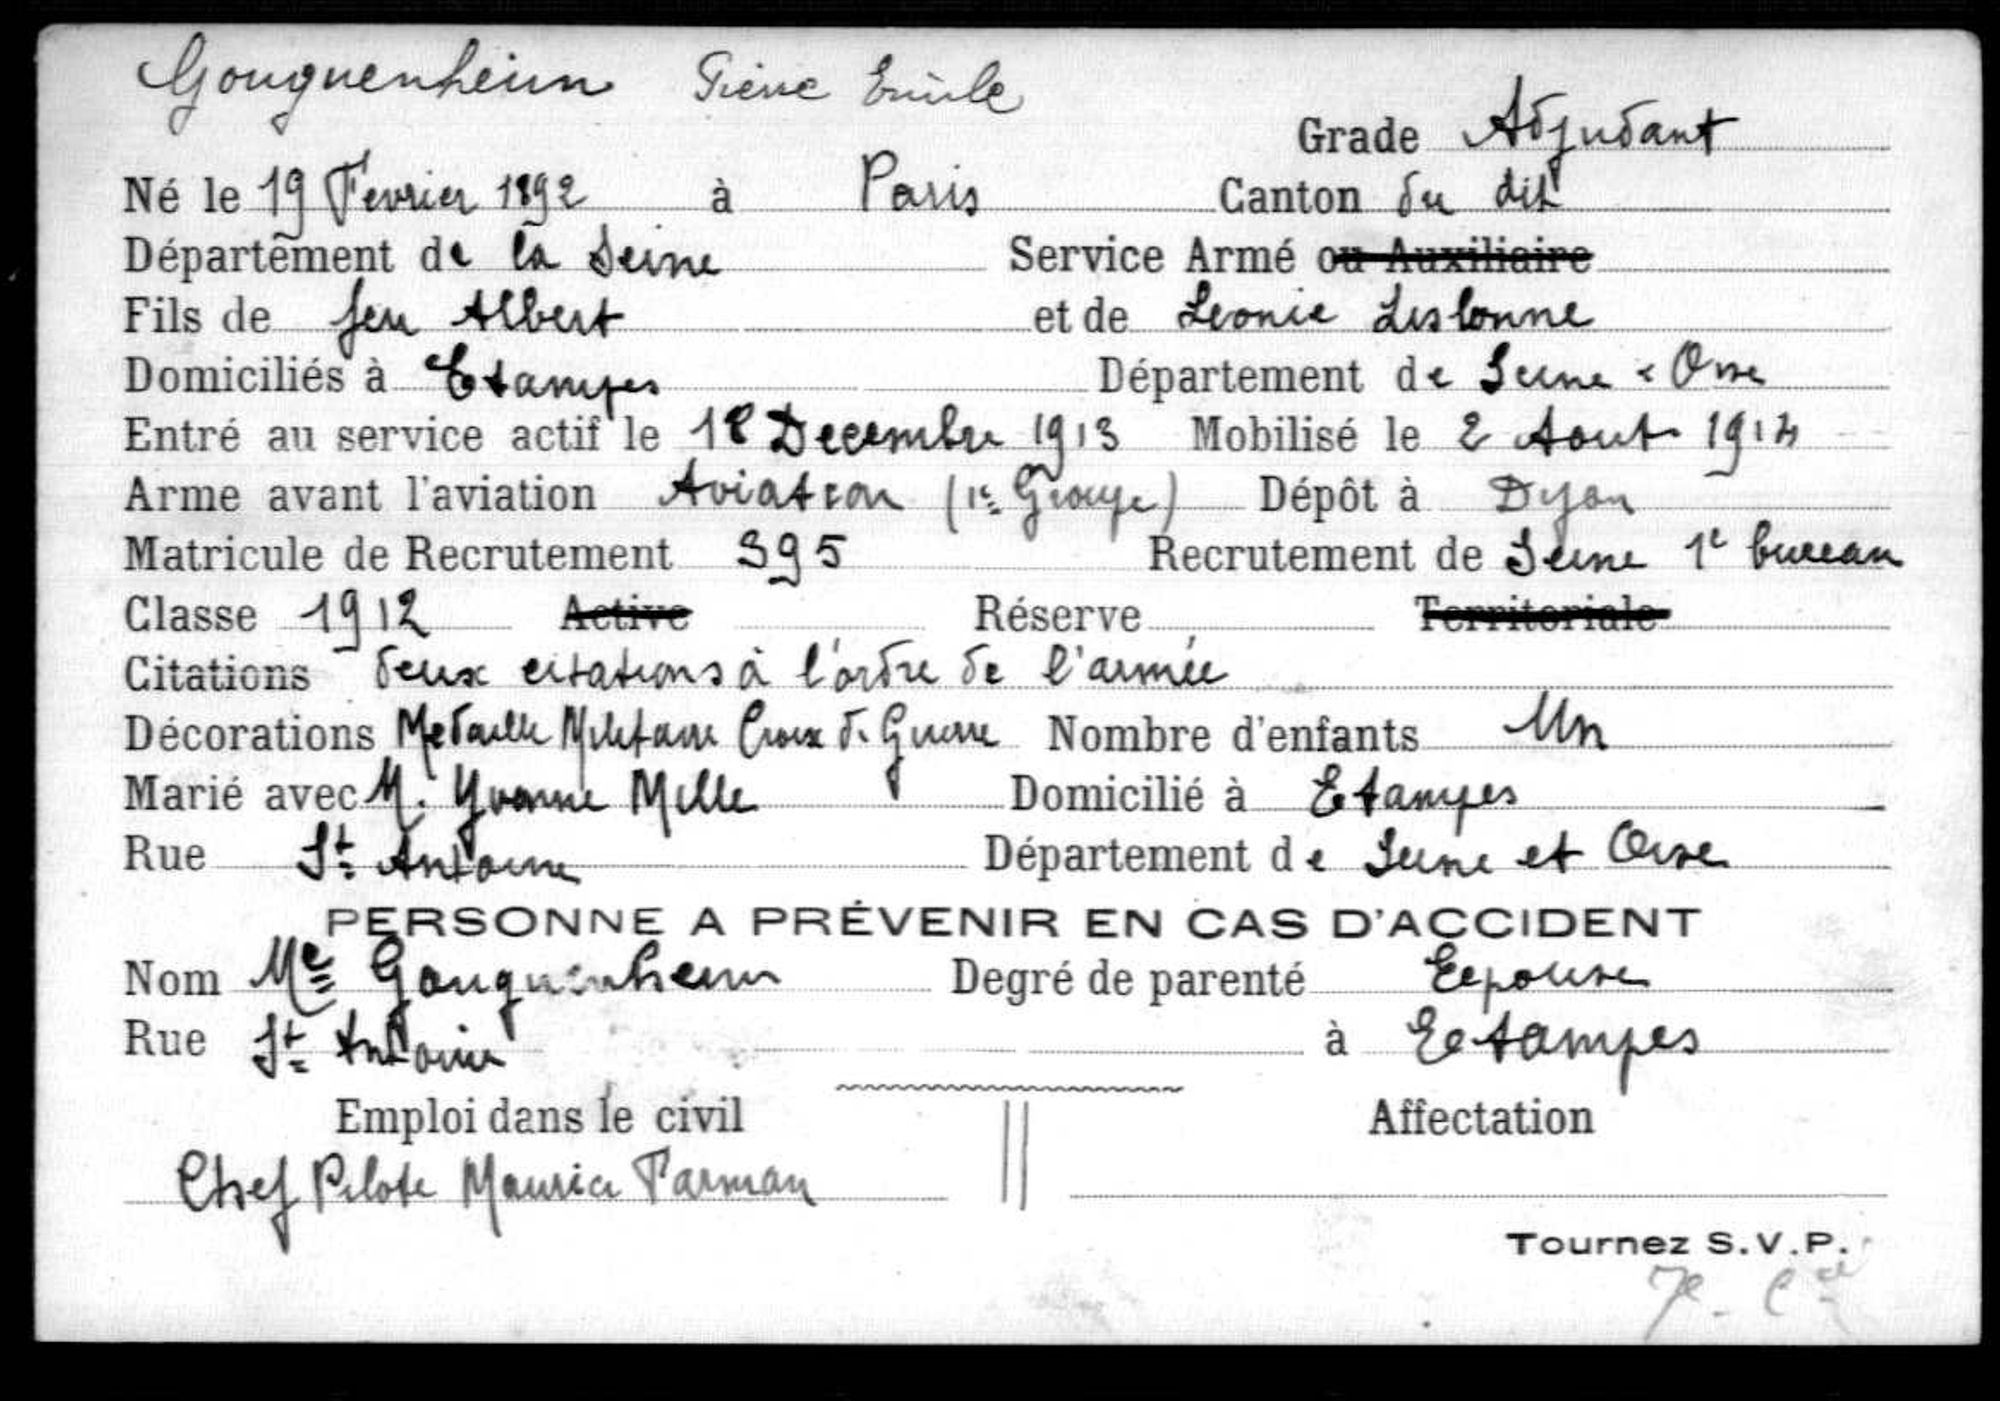 Gouguenheim Pierre Emile
Grade Adjudant
Né le 19 Fevrier 1892 à Paris Canton du dit
Département de la Seine Service Armé ou Auxiliaire
Fils de feu Albert et de Leonie Lisbonne
Domiciliés à Etampes Département de Seine & Oise
Entré au service actif le 18 Decembre 1913 Mobilisé le 2 Aout 1914
Arme avant l'aviation Aviation (1e Groupe) Dépôt à Dijon
Matricule de Recrutement 395 Recrutement de Seine 1e bureau
Classe 1912 Active Réserve Territoriale
Citations deux citations à l'ordre de l'armée
Décorations Medaille Militaire Croix de Guerre Nombre d'enfants Un
Marié avec M. Yvonne Mille Domicilié à Etampes
Rue St Antoine Département de Seine et Oise
PERSONNE A PRÉVENIR EN CAS D'ACCIDENT
Nom Me Gouguenheim Degré de parenté Epouse
Rue St Antoine à Etampes
Emploi dans le civil Affectation
Chef Pilote Maurice Farman
Tournez S.V.P.
7e Cie